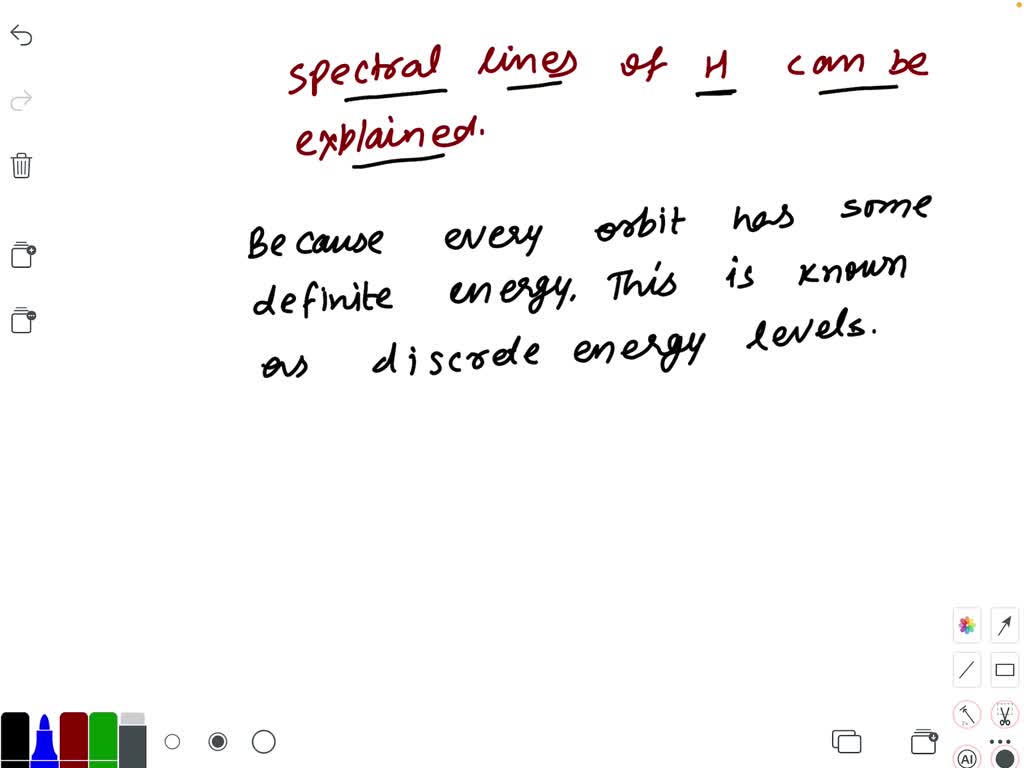 spectral lines of H can be
explained.
Because every orbit has some
definite energy. This is known
as discrete energy levels.
AI